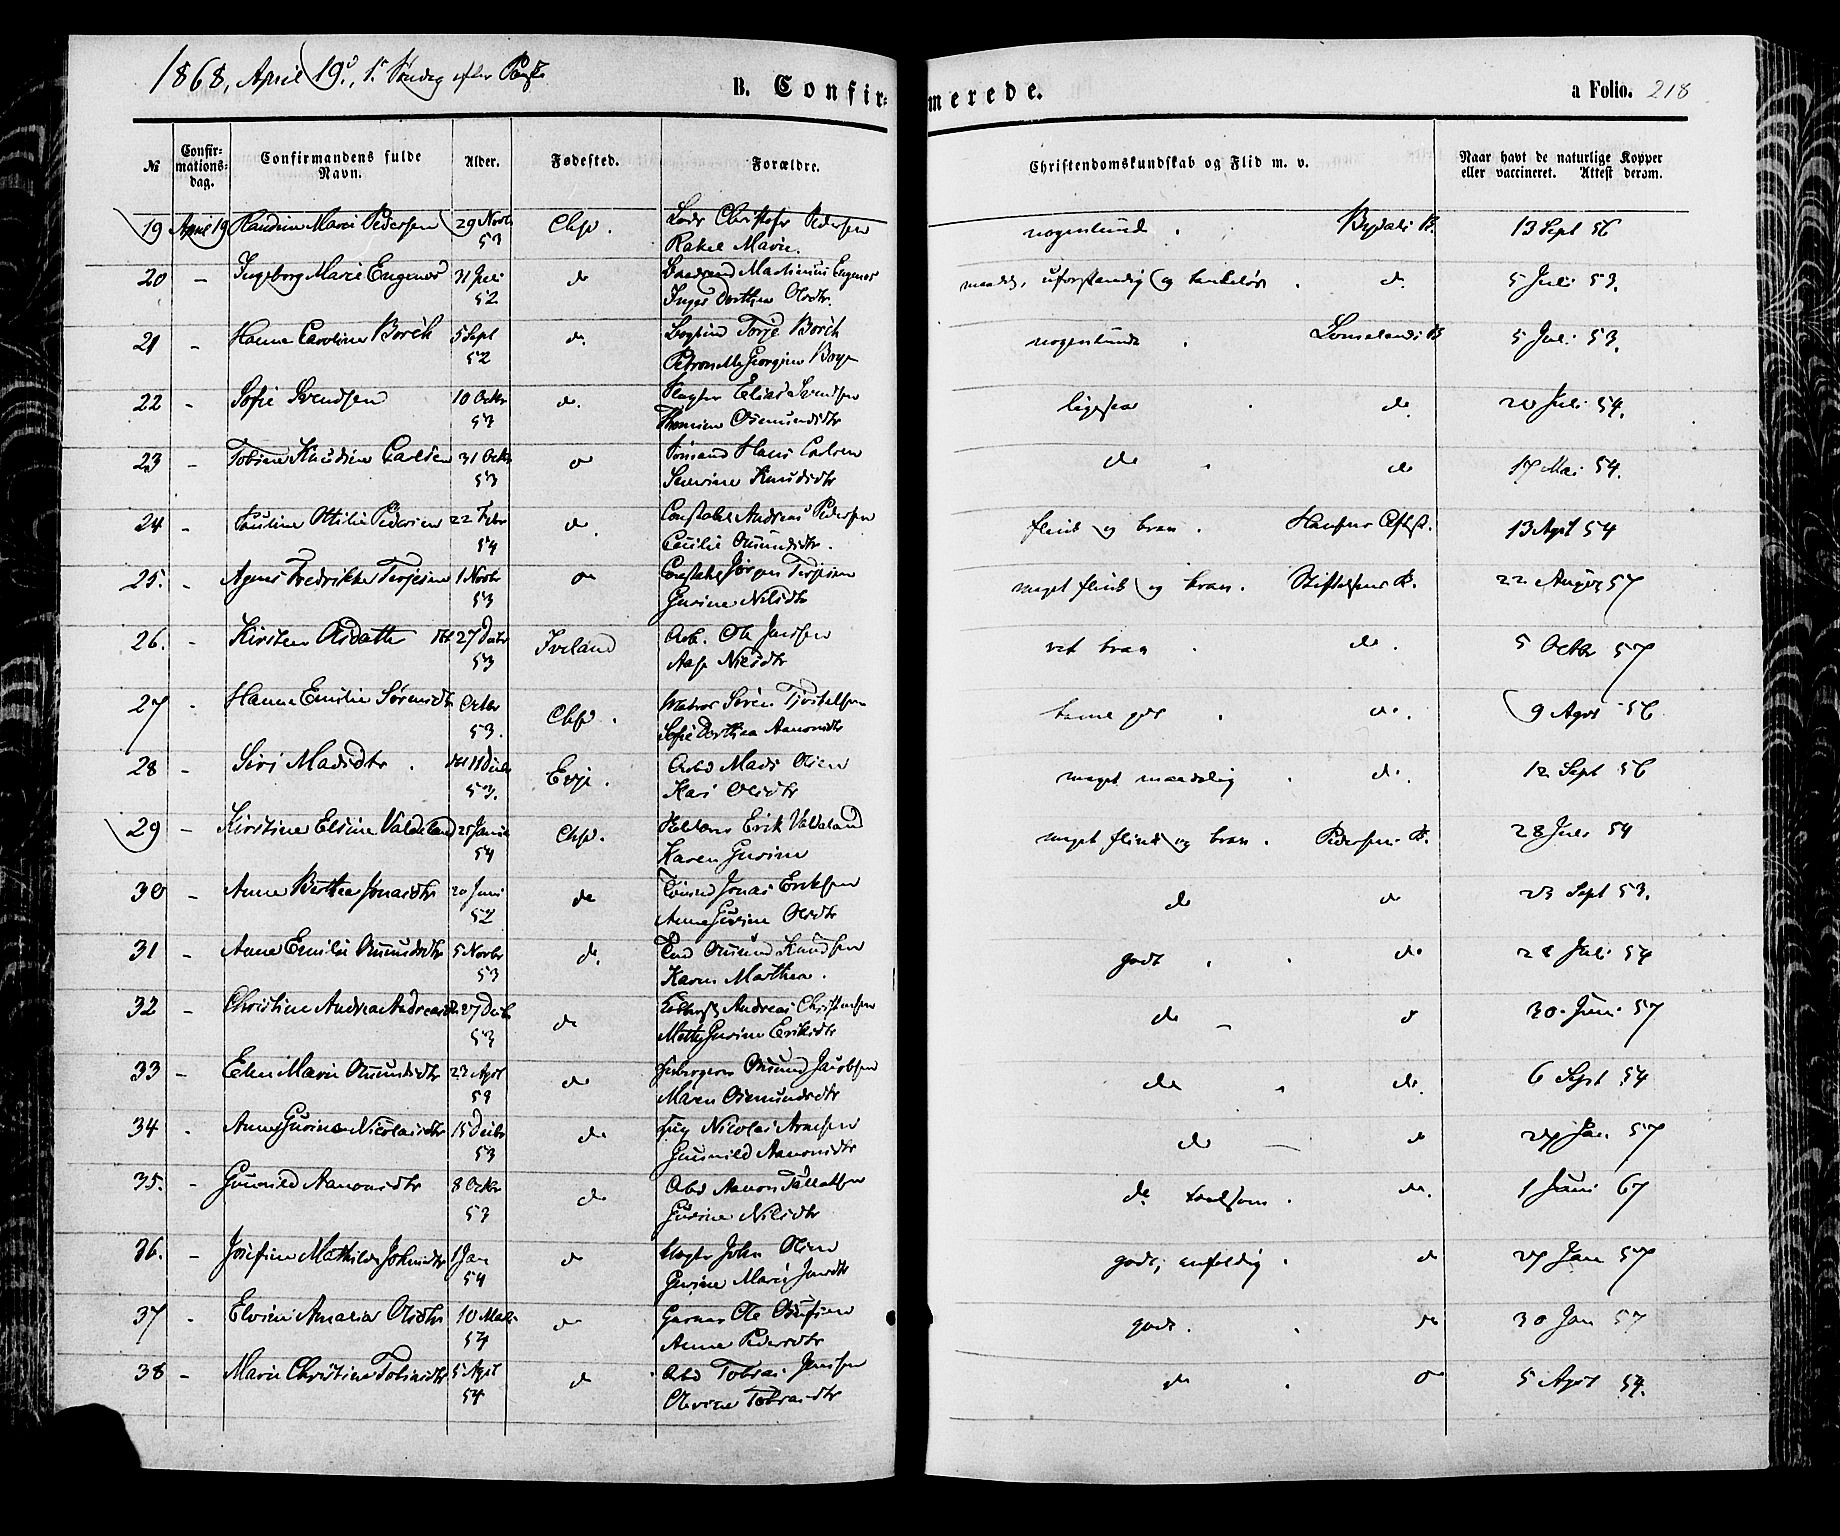 1868, April 19d., 1. Søndag efter Paaske
B. Confirmerede.
a Folio. 218
№ Confir-mations-dag. Confirmandens fulde Navn. Alder. Fødested. Forældre. Christendomskundskab og Flid m. v. Naar havt de naturlige Kopper eller vaccineret. Attest derom.
19 April 19 Marie Pedersen 29 Novbr Chsd. Christofer Pedersen nogenlunde 13 Sept 56
53 Rakel Marie
20 - Ingeborg Marie Eugenes 31 Juli do Mathinius Eugenes maadel. uforstandig og tankeløs do. 5 Juli 53.
52. Dorthea Olsdtr.
21 - Hanna Caroline Borch 5 Sept do. Terje Borch nogenlunde 5 Juli 53.
52 Petronelle Georgine
22 - Sofie Svendsen 10 Octbr do. Elias Svendsen ligesaa do 20 Juli 54.
53 Osmundsdtr
23 - Tobine Knudsine Carlsen 31 Octbr do Hans Carlsen do do 17 Mai 54.
53 Severine Knudsdtr
24 - Pauline Otilie Pedersen 22 Febr do. Constabel Andreas Pedersen flink og brav. 13 Agst 54
54 Cecilie Osmundsdtr.
25. - Agnes Fredrikke Terjesen 1 Novbr do Constabel Jørgen Terjesen meget flink og brav. Stiftelsens 22 August 57
53 Gurine Nilsdtr
26. - Kirsten 27 Decbr Iveland Arb. Ole Jensen ret brav do. 5 Octbr 57
53 Nilsdtr
27 - Hanna Emilie Sørensdtr Octbr Chsd. Matros Søren temme god do. 9 Agst 56
53. Sofie Dorthea Aanonsdtr
28 - Siri Madsdtr. 11 Decbr Evje. Arbd Mads Olsen meget maadelig do. 12 Sept 56
53. Kari Olsdtr
29 - Kirstine Elsine Valdeland 25 Januar Chsd. Erik Valdeland meget flink og brav. Pedersens 28 Juli 54
54 Karen Gurine
30 - Anne Berthea Jonasdtr 20 Juni do Jonas Eriksen do do 23 Sept 53.
52 Anne Gurine Olsdtr
31 - Anne Emilie Osmundsdtr 5 Novbr do. Osmund Knudsen godt do 28 Juli 54
53 Karen Marthea.
32 - Christine Andrea Andreasdtr 27 Decbr do Andreas Christensen do do 30. Juni 57
53 Mette Gurine Eriksdtr
33 - Elen Marie Osmundsdtr 23 Agst do Osmund Jacobsen do do. 6 Sept 54
53 Maren Osmundsdtr
34 - Anne Gurine Nicolaisdtr 15 Decbr do Nicolai Arnesen do do 27 Jan 57
53 Gunnild Aanonsdtr
35. - Gunnild Aanonsdtr 8 Octbr do Arbd Aanon Tallaksen do taalsom. do. 1 Juni 67
53 Gurine Nilsdtr
36. - Josefine Mathilde Johnsdtr 1 Jan do John Olsen godt, enfoldig. do 27 Jan 57
54 Gurine Marie Jensdtr
37 - Elvine Amalia Olsdtr 10 do Ole godt. do 30 Jan 57
54 Anne Pedersdtr
38 - Marie Christine Tobiasdtr 5 Agst do Arbd Tobias Jensen do do 5 Agst 54.
54 Olevine Tobiasdtr